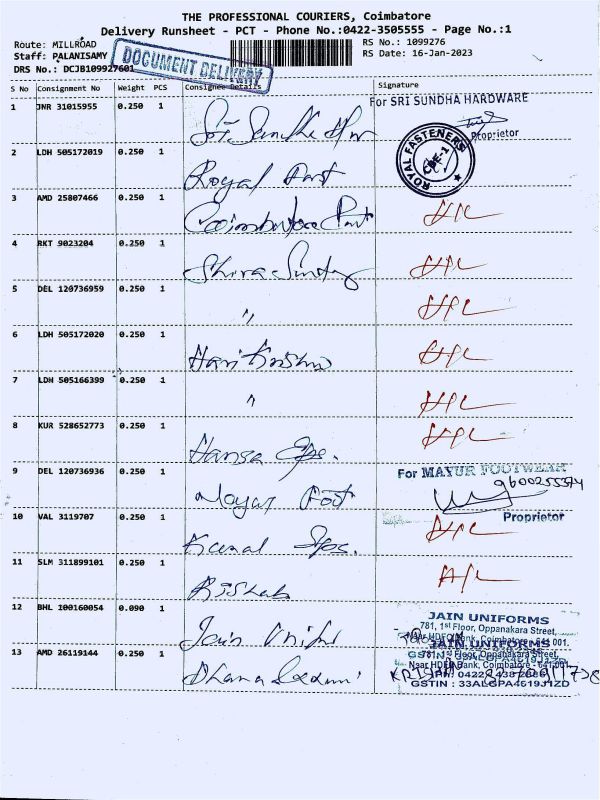 THE PROFESSIONAL COURIERS, Coimbatore
Delivery Runsheet - PCT - Phone No.:0422-3505555 - Page No.:1
Route: MILLROAD
RS No.: 1099276
Staff: PALANISAMY
RS Date: 16-Jan-2023
DRS No.: DCJB109927601
DOCUMENT DELIVERY
S No Consignment No Weight PCS Consignee Details Signature
For SRI SUNDHA HARDWARE
1 JNR 31015955 0.250 1
Proprietor
ROYAL FASTENERS
CBE-1
2 LDH 505172019 0.250 1
Royal
3 AMD 25807466 0.250 1 Coimbatore
4 RKT 9023204 0.250 1
Shiva
5 DEL 120736959 0.250 1
"
6 LDH 505172020 0.250 1
Hari Krishna
7 LDH 505166399 0.250 1
"
8 KUR 528652773 0.250 1
Hansa
9 DEL 120736936 0.250 1
For MAYUR FOOTWEAR
Mayur Foot
Proprietor
10 VAL 3119707 0.250 1
11 SLM 311899101 0.250 1
Rishab
12 BHL 100160054 0.090 1
JAIN UNIFORMS
781, 1st Floor, Oppanakara Street,
Jain
13 AMD 26119144 0.250 1
Near HDFC Bank, Coimbatore - 641 001.
GSTIN : 33ALGPA4619J1ZD